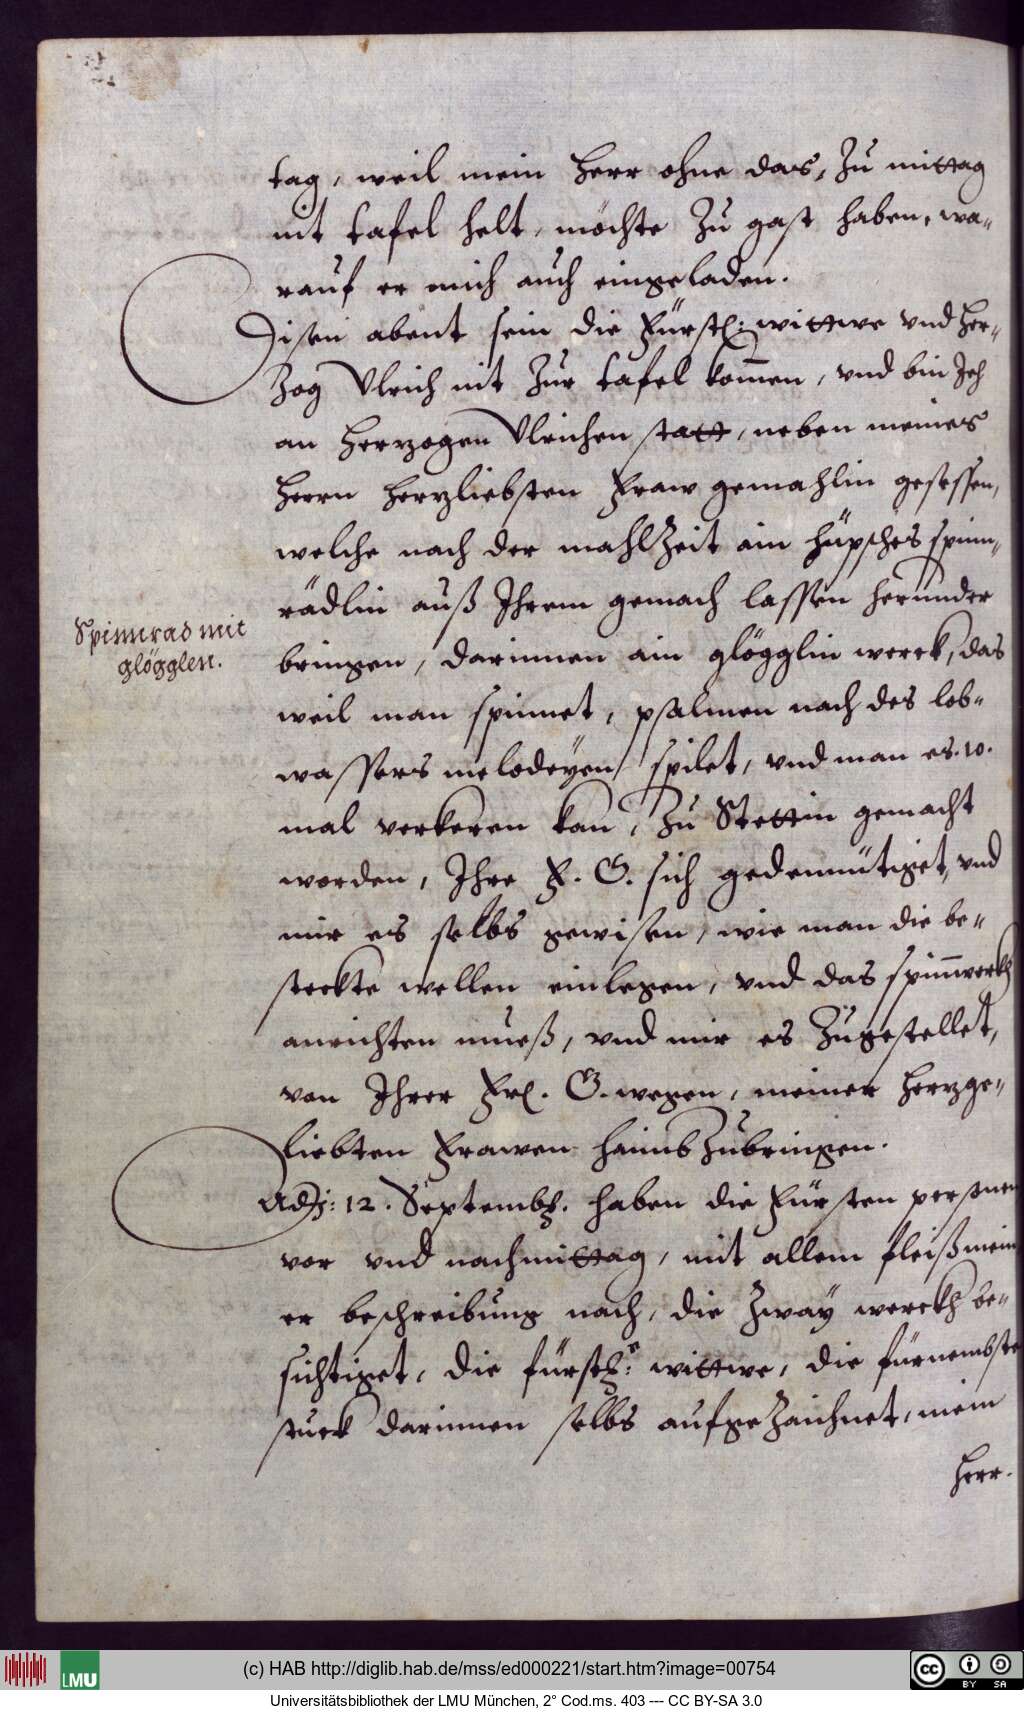 tag, weil mein Herr ohne das, zu mittag
nit tafel helt, möchte zu gast haben, wa-
rauf er mich auch eingeladen.
Disen abent sein die Fürstl: wittwe vnd Her-
zog Vlrich nit zur tafel kommen, vnd bin Ich
an Herzogen Vlrichen statt, neben meines
Herrn Herzliebsten Fraw gemahlin gesessen,
welche nach der mahlzeit ain hüpsches spinn-
rädlin auß Ihrem gemach lassen herunder
Spinnrad mit
glögglen.
bringen, darinnen ain glögglin werck, das
weil man spinnet, psalmen nach des lob-
wassers melodeyen spilet, vnd man es .10.
mal verkeren kan, zu Stettin gemacht
worden, Ihre F. G. sich gedemmütiget, vnd
mir es selbs gewisen, wie man die be-
steckte wellen einlegen, vnd das spinnwerckh
anrichten mueß, vnd mir es zugestellet,
von Ihrer Frl. G. wegen, meiner herzge-
liebten Frawen haimb zubringen.
Adj: 12. Septembr. haben die Fürsten personen
vor vnd nachmittag, mit allem fleiß mein
er beschreibung nach, die zway werckh be-
sichtiget, die fürstl: wittwe, die fürnembste
stuck darinnen selbs aufgezaichnet, mein
Herr.
(c) HAB http://diglib.hab.de/mss/ed000221/start.htm?image=00754
LMU
cc BY SA
Universitätsbibliothek der LMU München, 2° Cod.ms. 403 --- CC BY-SA 3.0